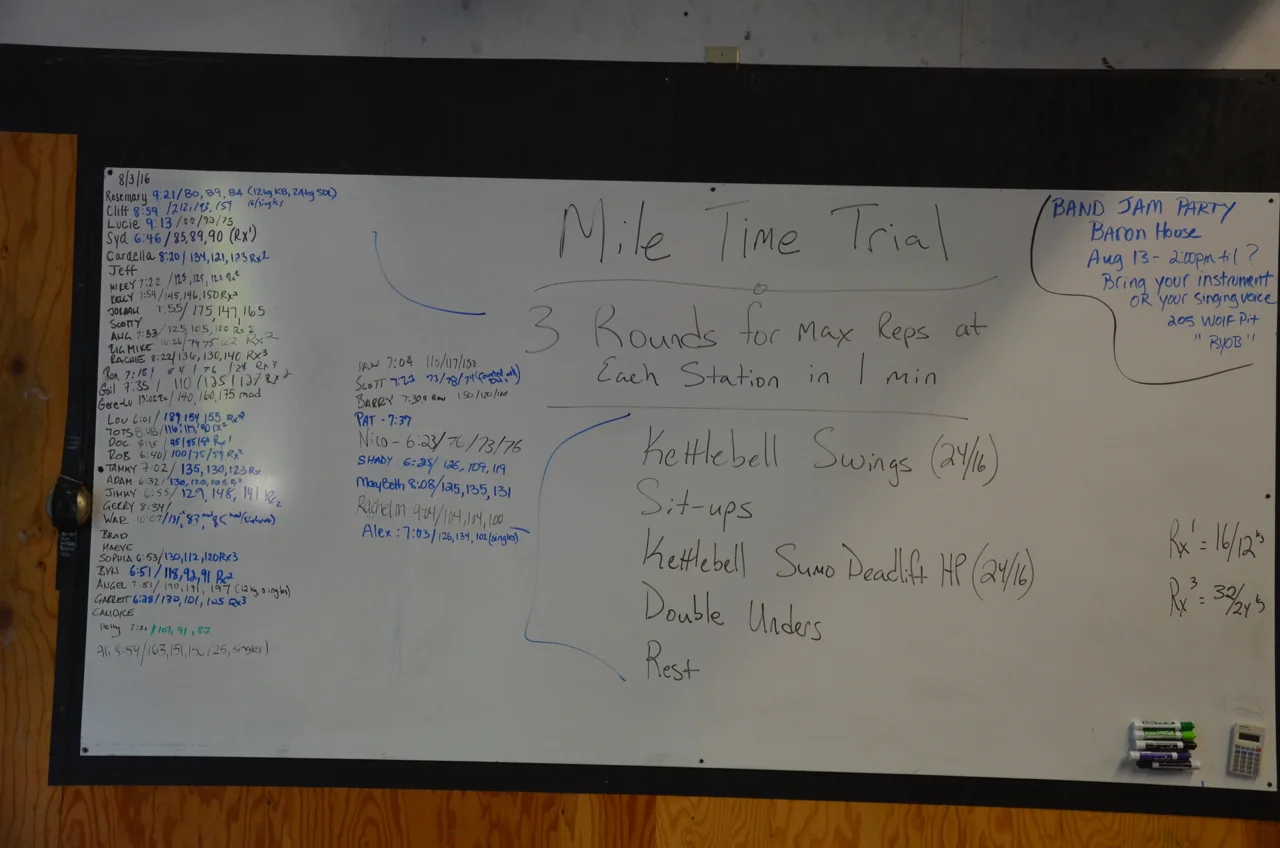 8/3/16
Rosemary 9:21/80, 89, 84 (12kg KB, 24kg SDL)
Cliff 8:59 /212, 193, 159 w/singles
Lucie 9:13/88/93/75
Syd 6:46/85,89,90 (Rx')
Cardella 8:20/134,121,123 Rx2
Jeff
MIKEY 7:22 /123, 125, 120 Rx2
KELLY 7:54/145,146,150 Rx3
JORDAN 7:55/ 175,147,165
SCOTTY
AHG 7:53/125,105,100 Rx2
BIG MIKE 10:26/74 75
RACHIE 8:22/136, 130, 140 Rx3
Ron 7:18
Gail 7:35/ 110/125/127 Rx2
140, 160, 175 mod
LOU 6:01/ 189 154 155
TOTS
DOC
ROB 6:40/ 100/75/59 Rx2
TAMMY 7:02/ 135, 130, 123 Rx
ADAM 6:32/
JIMMY 6:55/ 129, 148, 141 Rx2
GERRY 8:34/
WAR 10:07/
BRAD
MAEVE
SOPHIA 6:53/130,112,120 Rx3
BYN 6:51/ 118,92,91 Rx2
ANGEL 7:51/ 190, 191, 197
GARRETT 6:28/130, 101, 105 Rx3
CANDICE
Holly 7:21/107, 91, 87
Ali 8:59/163,151,150 (25, singles)
IAN 7:04 115/117/150
SCOTT 7:23 73/78/74
BARRY 7:30 Row 150/120/100
PAT - 7:37
Nico - 6:23/76/73/76
SHADY 6:25/ 126, 109, 119
MaryBeth 8:08/125, 135, 131
Rachel m 9:04/104, 104, 100
Alex: 7:03/126, 134, 102 (singles)
Mile Time Trial
3 Rounds for Max Reps at
Each Station in 1 min
Kettlebell Swings (24/16)
Sit-ups
Kettlebell Sumo Deadlift HP (24/16)
Double Unders
Rest
BAND JAM PARTY
Baron House
Aug 13 - 2:00pm til ?
Bring your instrument
OR your singing voice
205 WOLF Pit
"BYOB"
Rx' = 16/12 kg
Rx3 = 32/24 kg